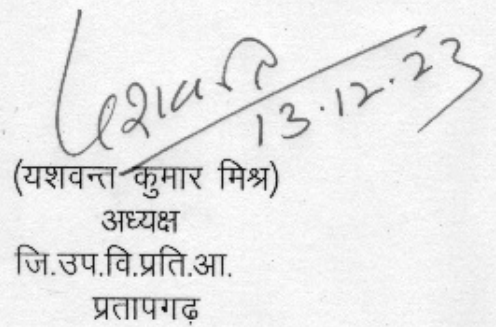 यशवन्त
13.12.23
(यशवन्त कुमार मिश्र)
अध्यक्ष
जि.उप.वि.प्रति.आ.
प्रतापगढ़